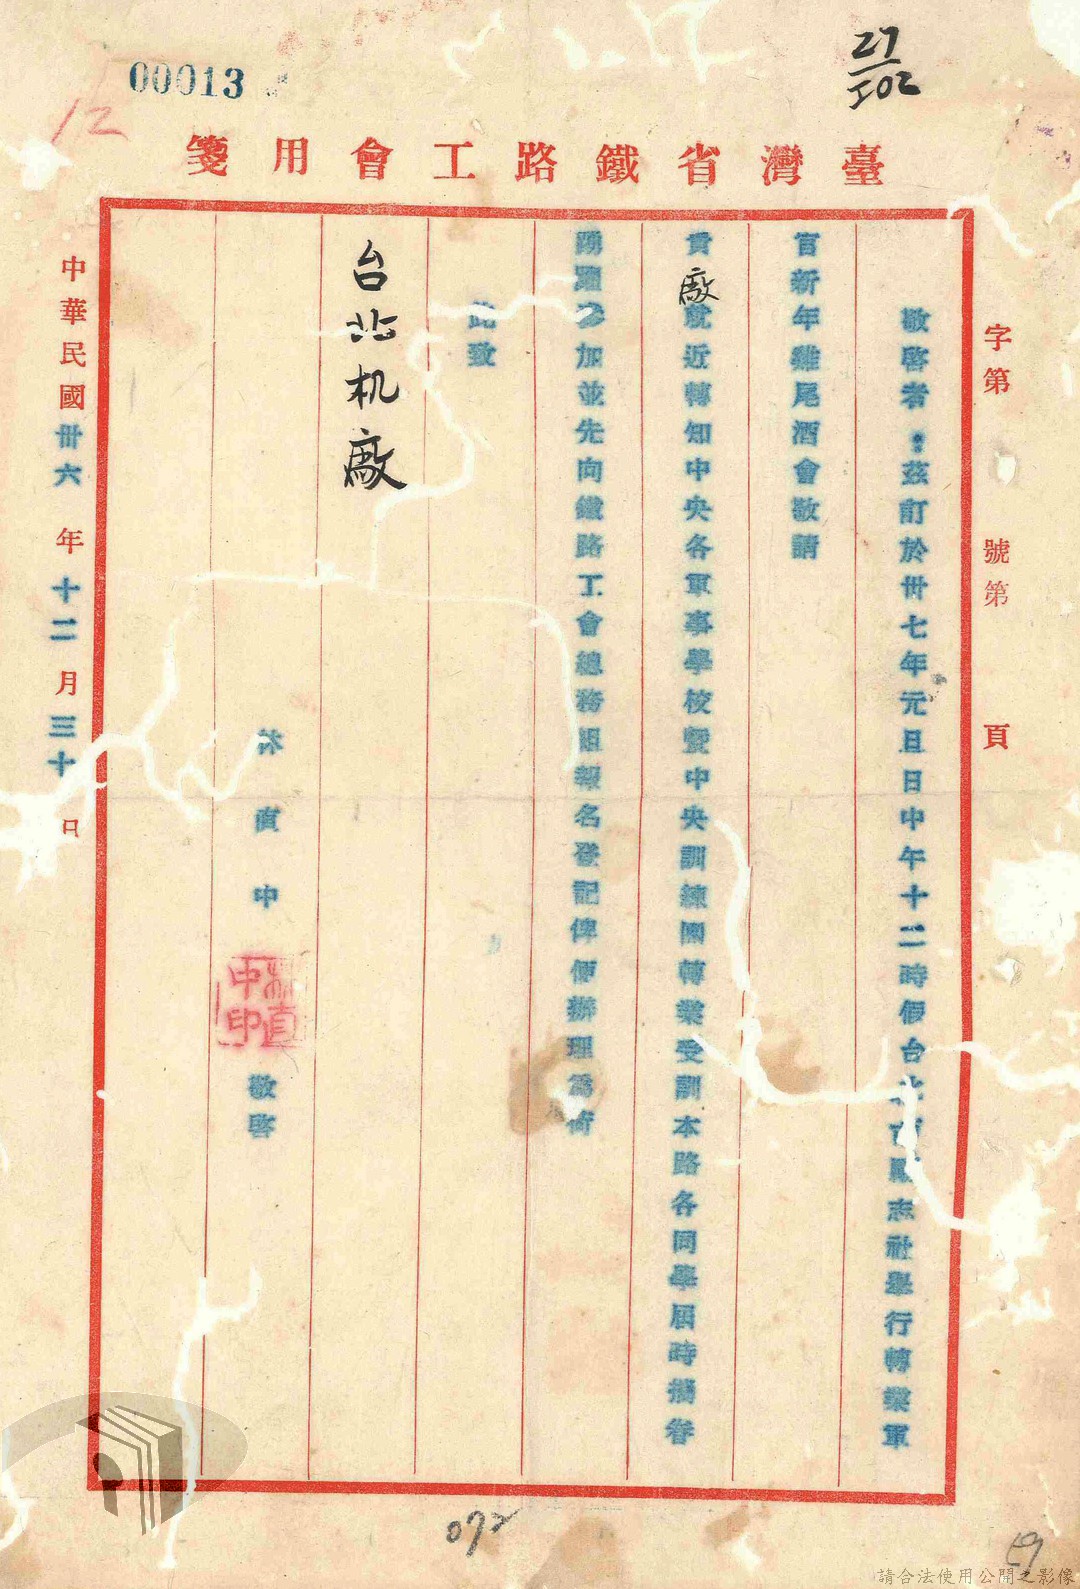 00013
27/I02
12
臺灣省鐵路工會用箋
字第　號第　頁
敬啓者：茲訂於卅七年元旦日中午十二時假台北市勵志社舉行轉業軍
官新年雞尾酒會敬請
貴廠就近轉知中央各軍事學校暨中央訓練團轉業受訓本路各同學屆時攜眷
踴躍參加並先向鐵路工會總務組報名登記俾便辦理為荷
此致
台北机廠
林直中
林直中印
敬啓
中華民國卅六年十二月三十日
072
59
請合法使用公開之影像